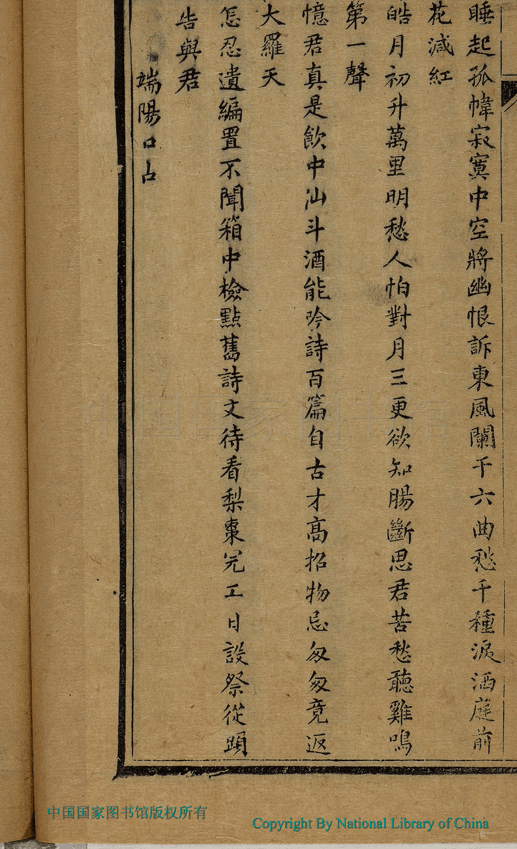 睡起孤幃寂寞中空將幽恨訴東風闌干六曲愁千種淚洒庭前
花減紅
皓月初升萬里明愁人怕對月三更欲知腸斷思君苦愁聽雞鳴
第一聲
憶君真是飲中仙斗酒能吟詩百篇自古才高招物忌匆匆竟返
大羅天
怎忍遺編置不聞箱中檢點舊詩文待看梨棗完工日設祭從頭
告與君
端陽口占
中国国家图书馆版权所有
Copyright By National Library of China